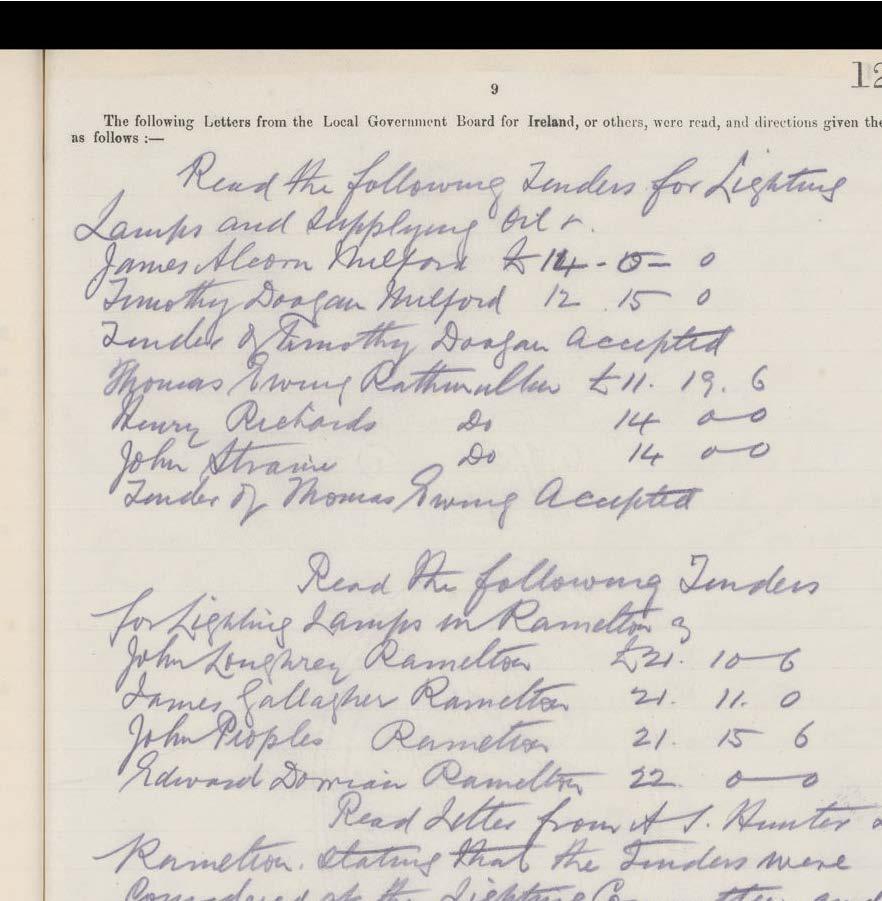 9
12
The following Letters from the Local Government Board for Ireland, or others, were read, and directions given the
as follows :—
Read the following Tenders for Lighting
Lamps and supplying Oil &.
James Alcorn Milford £14 - 5 - 0
Timothy Doogan Milford 12 15 0
Tender of Timothy Doogan Accepted
Thomas Ewing Rathmullen £11. 19. 6
Henry Richards Do 14 0-0
John Do 14 0-0
Tender of Thomas Ewing Accepted
Read the following Tenders
for Lighting Lamps in Ramelton
John Loughrey Ramelton £21. 10-6
James Gallagher Ramelton 21. 11. 0
John Pioples Ramelton 21. 15 6
Edward Dorrian Ramelton 22. 0-0
Read Letter from A S. Hunter
Ramelton. stating that the Tenders were
the Lighting